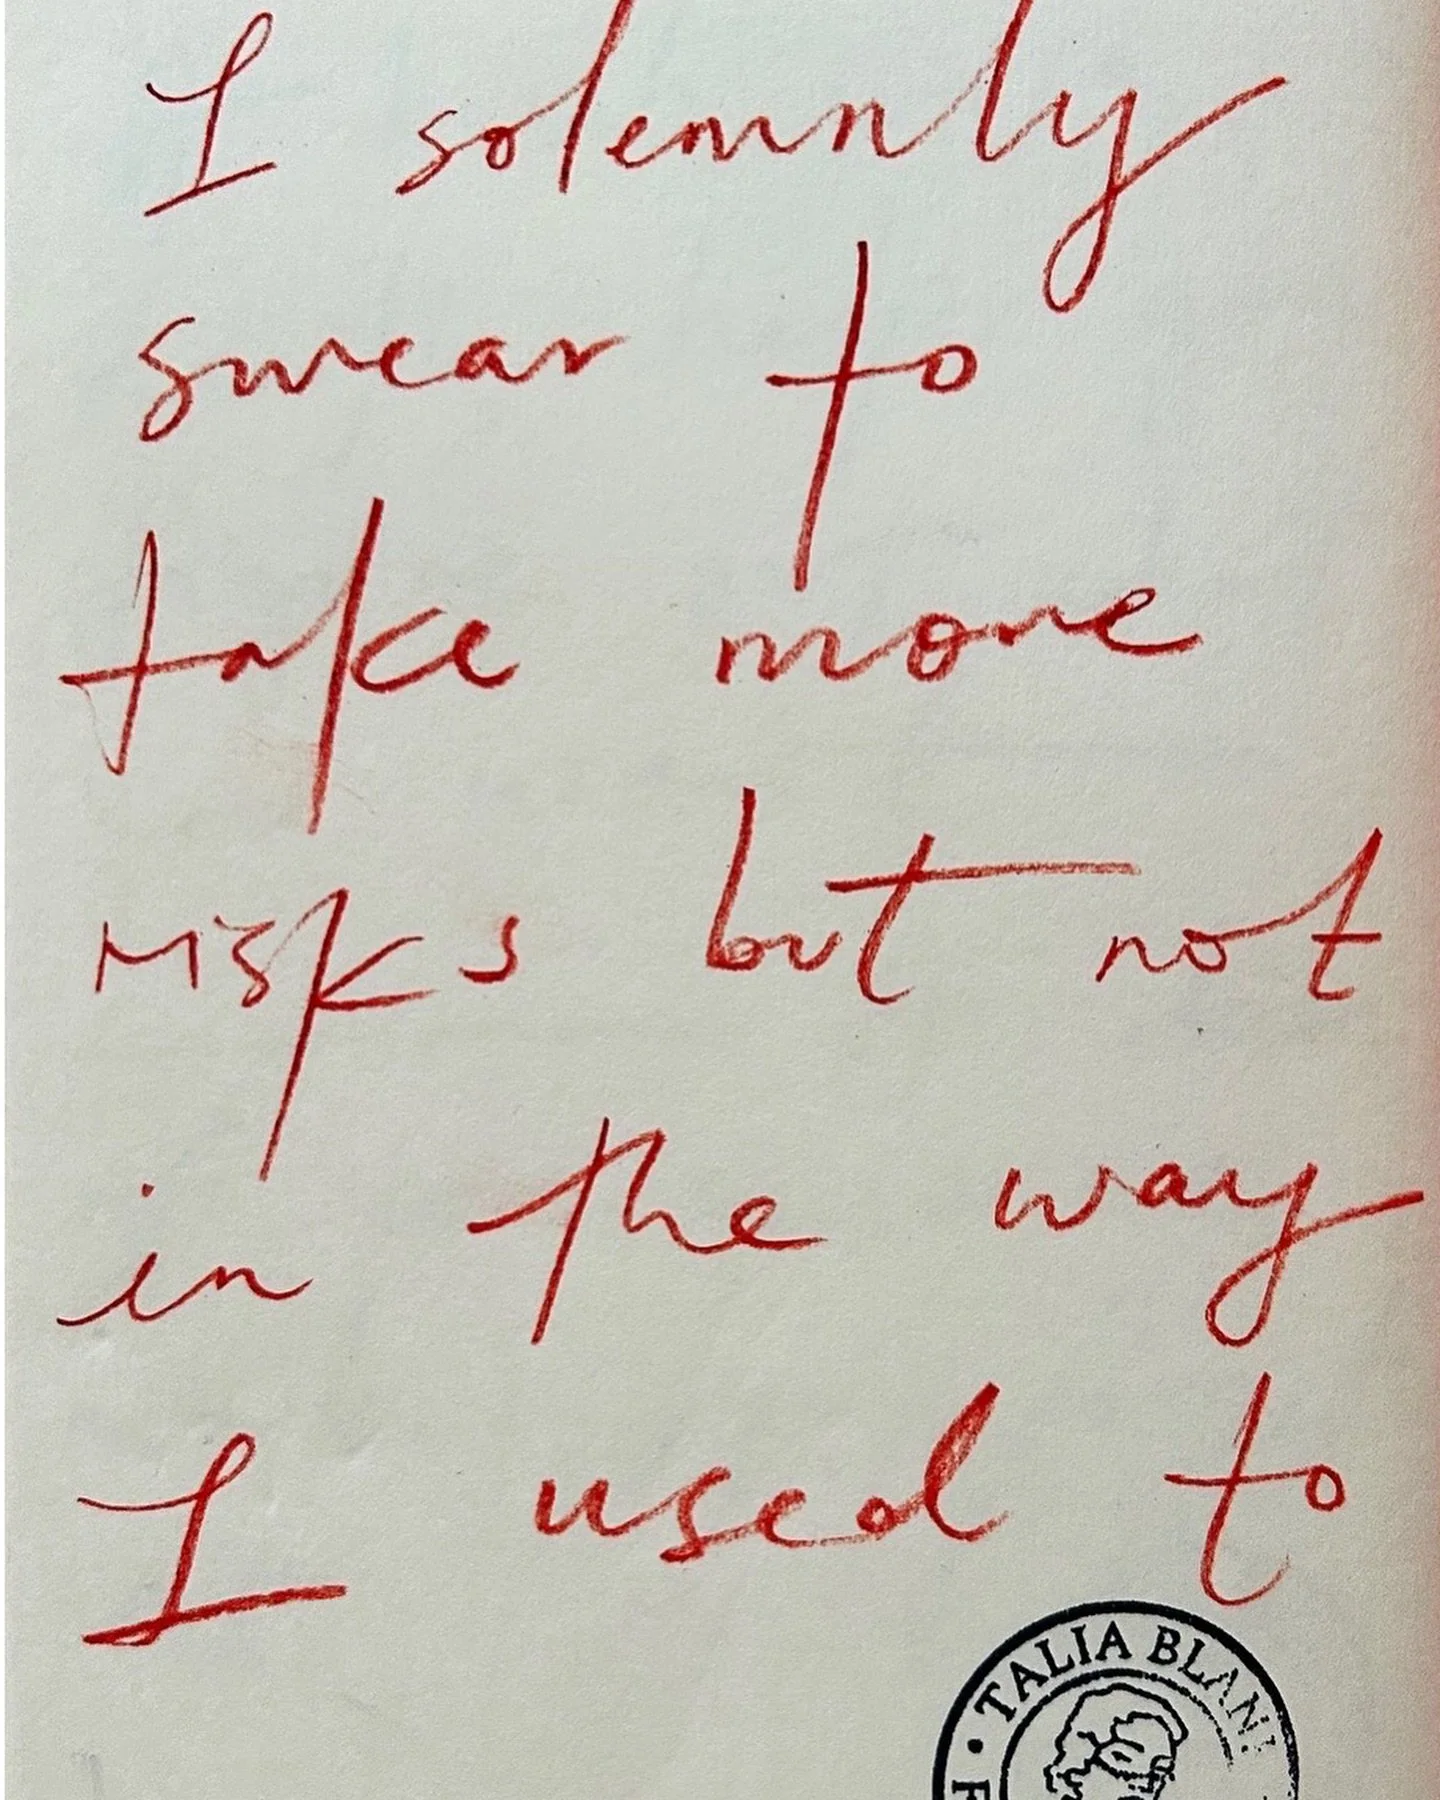 I solemnly
swear to
take more
risks but not
in the way
I used to
TALIA BLAN